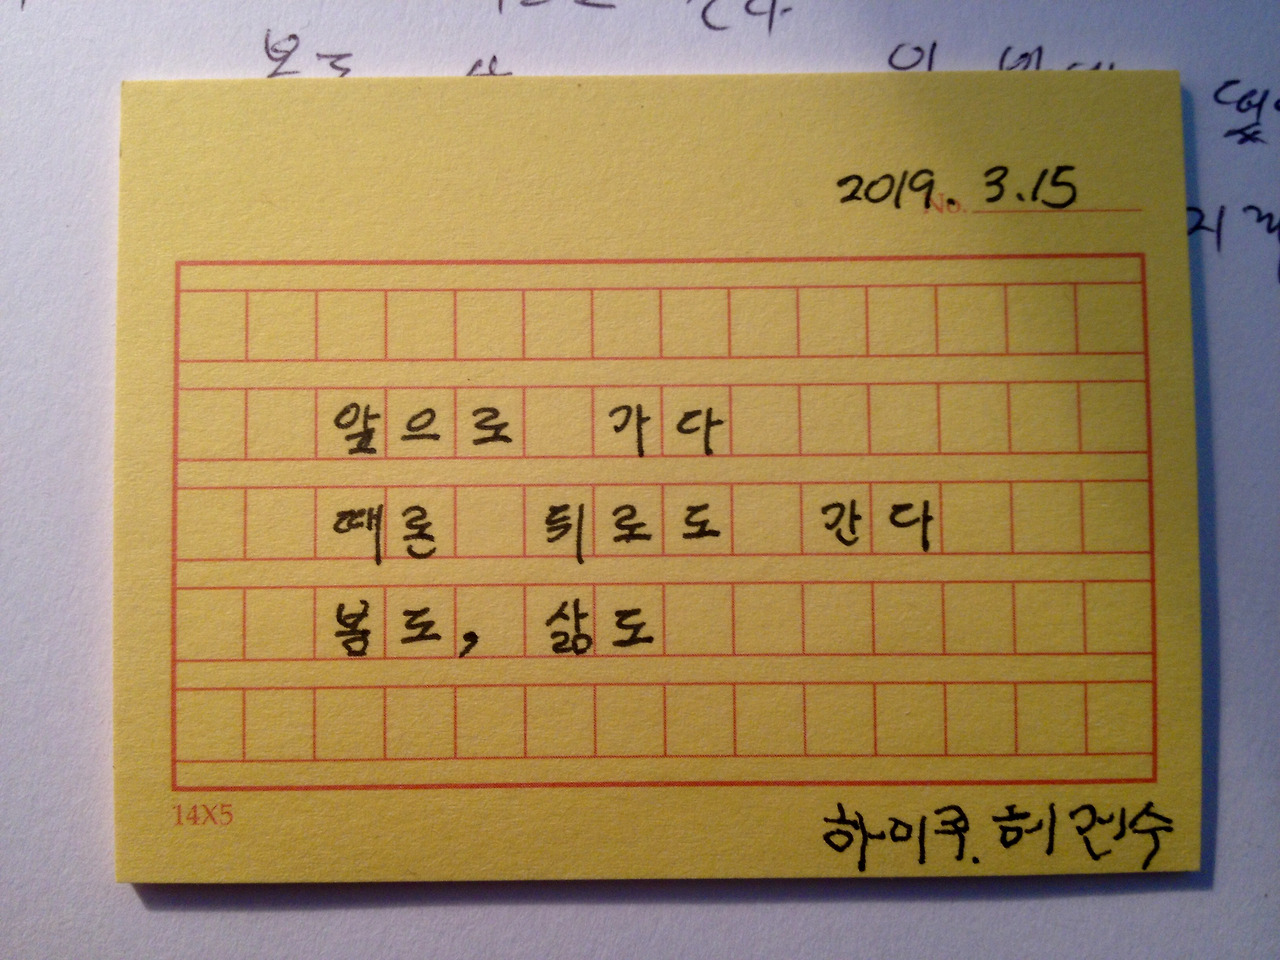 2019. 3.15
No.
앞으로 가다
때론 뒤로도 간다
봄도, 삶도
14X5
하이쿠. 허건수